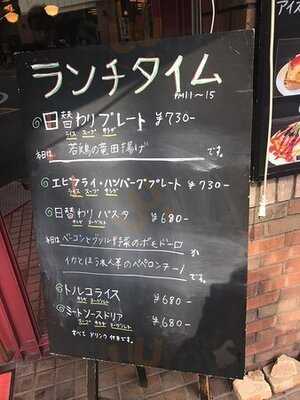 ランチタイム
AM11～15
◎日替わりプレート ¥730-
ライス スープ サラダ
本日は 若鶏の竜田揚げ です。
◎エビフライ・ハンバーグプレート ¥730-
ライス スープ サラダ
◎日替わりパスタ ¥680-
サラダ ヨーグルト
本日は ベーコンとグリル野菜のポモドーロ か
イカとほうれん草のペペロンチーノ
です。
◎トルコライス ¥680-
サラダ ヨーグルト
◎ミートソースドリア ¥680-
スープ サラダ ヨーグルト
すべて ドリンク 付きです。
アイス